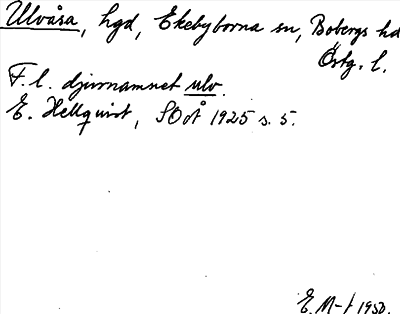 Ulvåsa, hgd, Ekebyborna sn, Bobergs hd
Östg. l.
F.l. djurnamnet ulv.
E. Hellquist, SOoÅ 1925 s. 5.
E. M-t 1950.